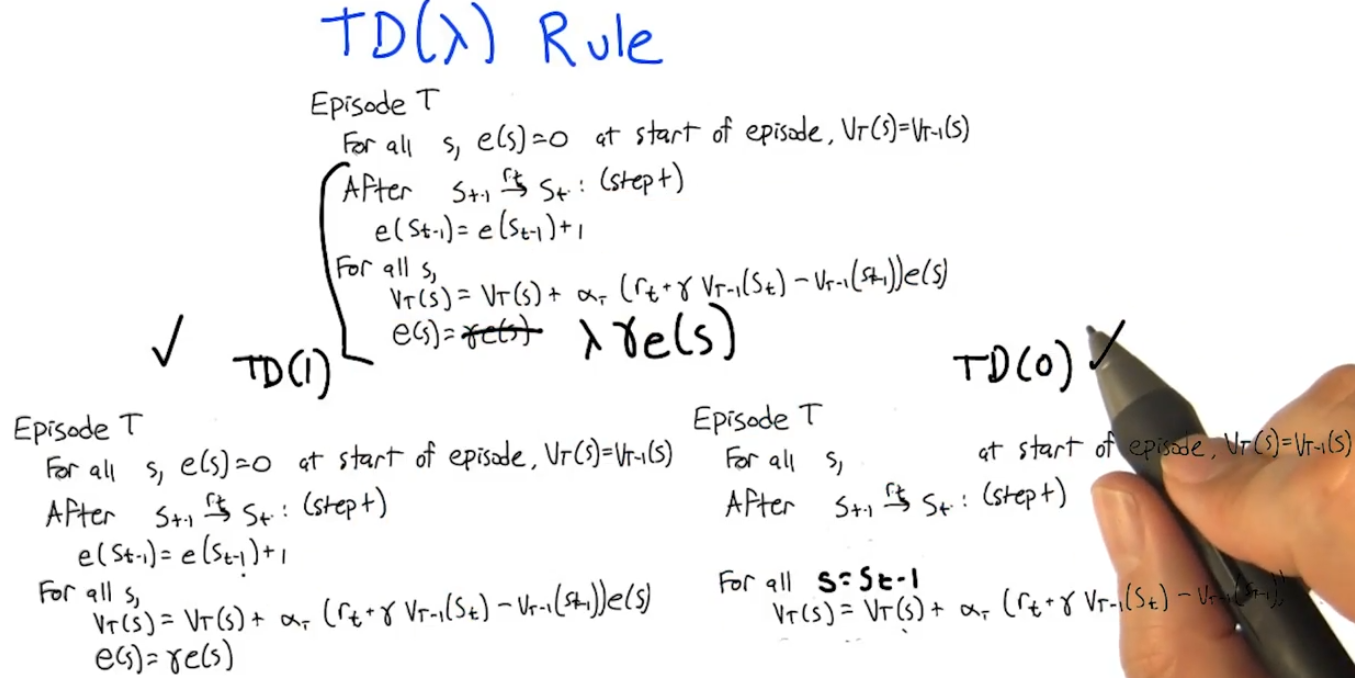 TD(λ) Rule
Episode T
For all s, e(s)=0 at start of episode, V_T(s)=V_T-1(s)
After S_t-1 →^r_t S_t : (step t)
e(S_t-1)= e(S_t-1)+1
For all s,
V_T(s) = V_T(s) + α_T (r_t + γ V_T-1(S_t) − V_T-1(S_t-1))e(s)
e(s)= γe(s) λγe(s)
✓ TD(1)
TD(0) ✓
Episode T
For all s, e(s)=0 at start of episode, V_T(s)=V_T-1(s)
After S_t-1 →^r_t S_t : (step t)
e(S_t-1)= e(S_t-1)+1
For all s,
V_T(s) = V_T(s) + α_T (r_t + γ V_T-1(S_t) − V_T-1(S_t-1))e(s)
e(s)= γe(s)
Episode T
For all s, at start of episode, V_T(s)=V_T-1(s)
After S_t-1 →^r_t S_t : (step t)
For all s=S_t-1
V_T(s) = V_T(s) + α_T (r_t + γ V_T-1(S_t) − V_T-1(S_t-1))